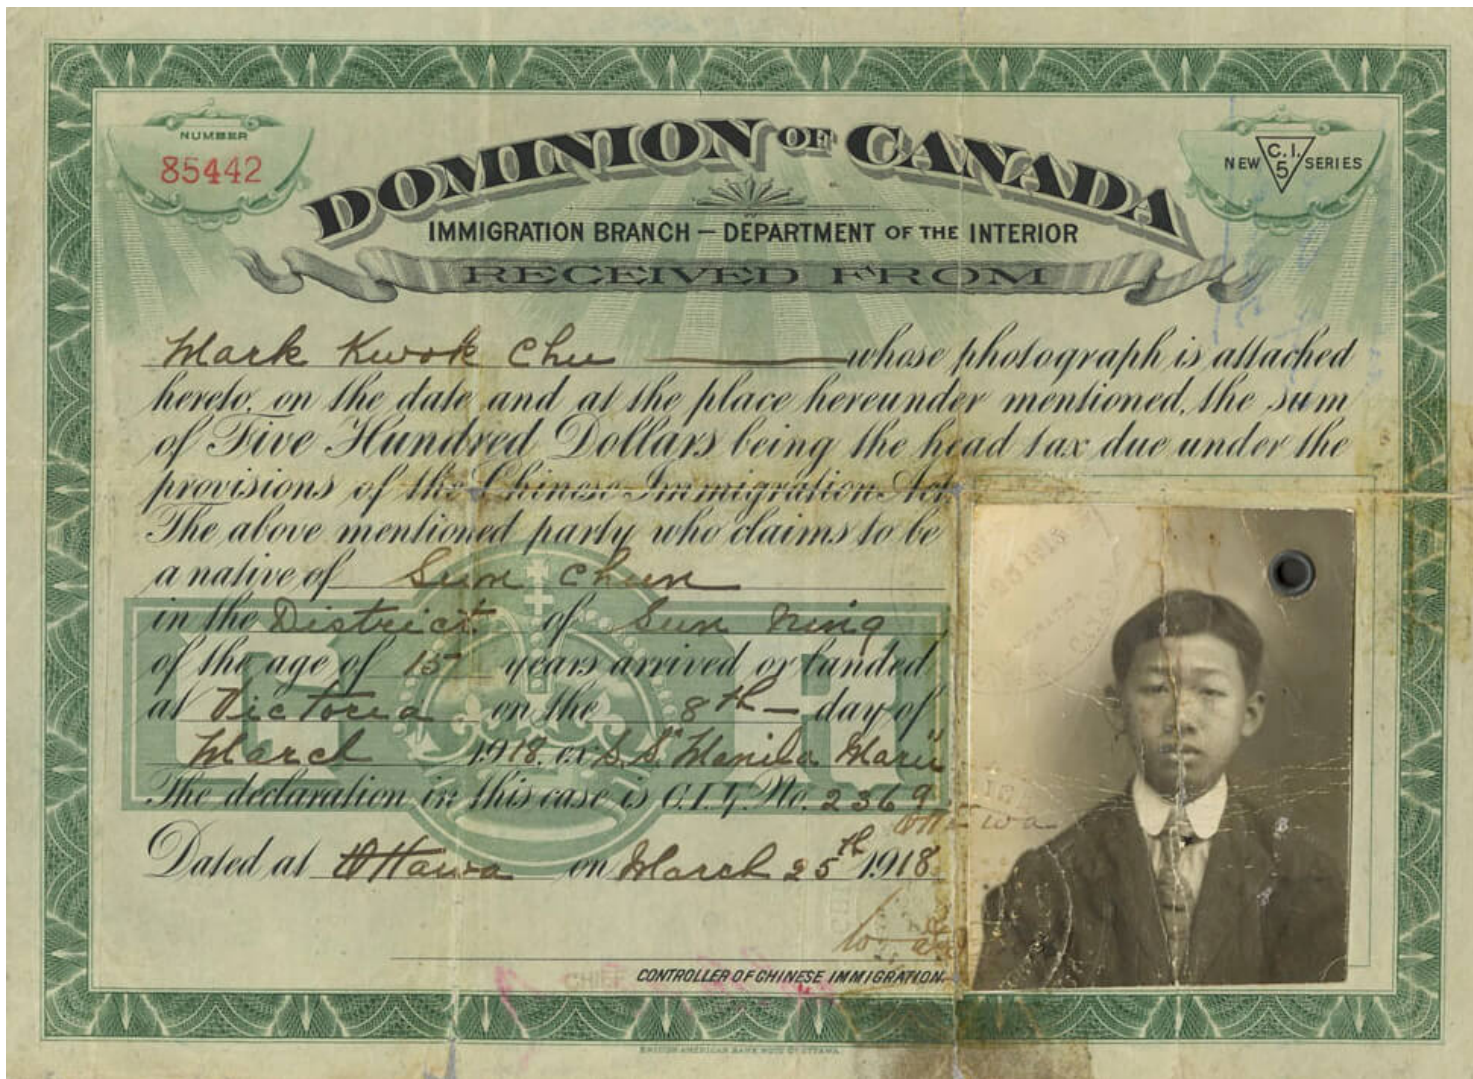 NUMBER
85442
DOMINION OF CANADA
NEW C.I. 5 SERIES
IMMIGRATION BRANCH — DEPARTMENT OF THE INTERIOR
RECEIVED FROM
Mark Kwok Chu whose photograph is attached
hereto, on the date and at the place hereunder mentioned, the sum
of Five Hundred Dollars being the head tax due under the
provisions of the Chinese Immigration Act
The above mentioned party who claims to be
a native of Sun Chun
in the District of Sun Ning
of the age of 15 years arrived or landed
at Victoria on the 8th day of
March 1918. ex S.S. "Manila Maru
The declaration in this case is C.I.4. No. 2369
Ottawa
Dated at Ottawa on March 25th 1918
CHIEF CONTROLLER OF CHINESE IMMIGRATION.